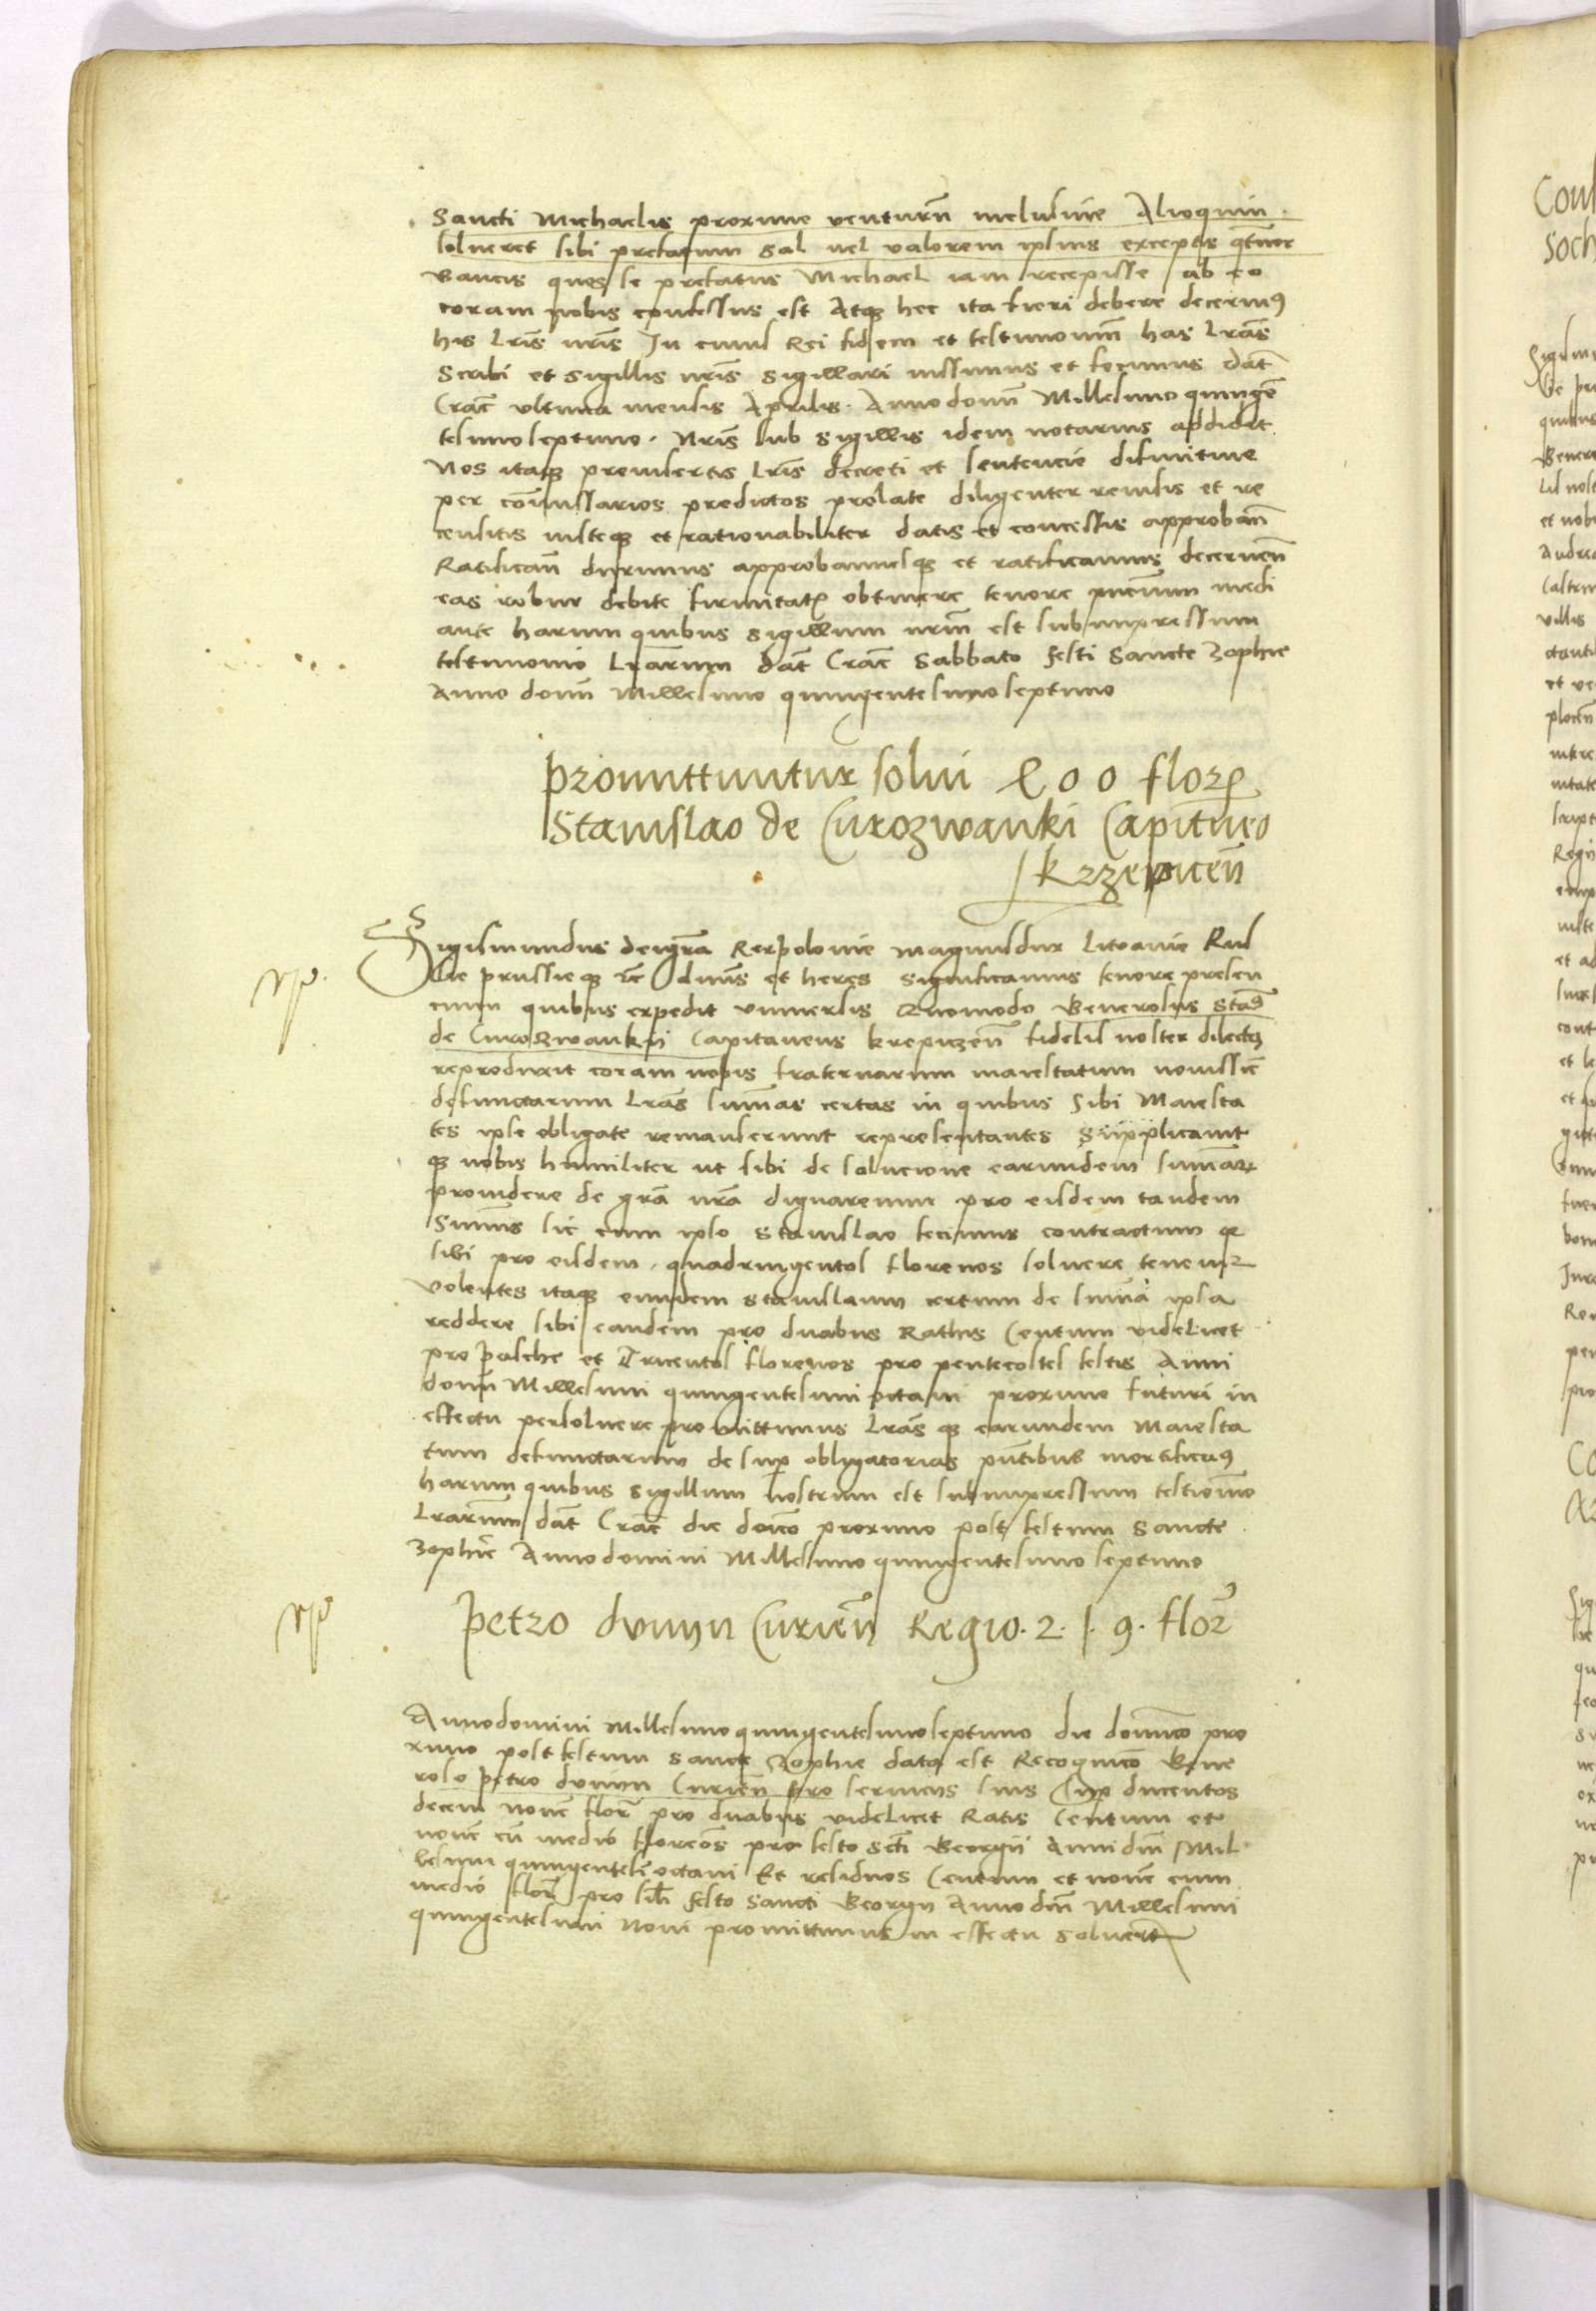 Sancti Michaelis proxime ventur̄n inclusive Alioquin
solveret sibi prefatum Sal vel valorem ipsius exceptis qt̄uor
Bancis quos se prefatus Michael iam recepisse ab eo
coram nobis confessus est Atqꝫ hec ita fieri debere decernimꝯ
his Lr̄is nr̄is In cuius Rei fidem et testimoniū has Lrās
Scribi et sigillis nr̄is sigillari iussimus et fecimus dat̄
Crac̄ ultima mensis Aprilis. Anno domī Millesimo quingē
tesimoseptimo. Nr̄is sub sigillis idem notarius addidit
Nos itaqꝫ preinsertis Lr̄is decreti et sentencie difinitive
per cōmissarios predictos prolate diligenter revisis et re
censitis iusteqꝫ et rationabiliter datis et concessis approbān
Ratificān duximus approbamusqꝫ et ratificamus decernen̄
eas robur debite firmitatꝭ obtinere tenore pn̄cium medi
ante harum quibus sigillum nr̄m est subimpressum
testimonio Lr̄arum dat̄ Crac̄ Sabbato festi Sancte Zophie
Anno domī Millesimo quingentesimoseptimo
Promittuntur solvi 400 florꝭ
Stanislao de Curozwanki Capitaneo
krzepicen̄
Sigismundus dei grā Rex polonie magnusdux Litvanie Rus
sie prussieqꝫ etc̄ dn̄us et heres Significamus tenore presen
cium quibus expedit universis Quomodo Generosus Stāꝰ
de Curozwankij Capitaneus krepiczen̄ fidelis noster dilectꝯ
reproduxit coram nobis fraternarum maiestatum novissīe
defunctarum Lrās sum̄as certas in quibus sibi Maiesta
tes ipse obligate remanserunt representantes Supplicavit
qꝫ nobis humiliter ut sibi de solucione earundem sum̄arꝝ
providere de grā nrā dignaremur pro eisdem tandem
Sum̄is sic cum ipso Stanislao fecimus contractum qꝫ
sibi pro eisdem quadringentos florenos solvere tenemur
volentes itaqꝫ eundem Stanislaum certum de sum̄a ipsa
reddere sibi eandem pro duabus Rathis Centum videlicet
pro pasche et Tricentos florenos pro pentecostes festis Anni
domī Millesimi quingentesimi octavi proxime futuri in
effectu persolvere promittimus Lrās qꝫ earundem Maiesta
tum defunctarum desuꝑ obligatorias pn̄tibus mortificamꝯ
harum quibus sigillum nostrum est subimpressum testimonio
Lrārum dat̄ Crac̄ die doīco proximo post festum Sancte
Zophie Anno domini Millesimo quingentesimo septimo
Petro dunyn Curien̄ Regio. 2. 1. 9. flor̄
Anno domini Millesimo quingentesimoseptimo die domīco pro
ximo post festum Sancte Zophie data est Recognicō Gene
roso petro dunyn Curien̄ pro serviciis suis suꝑ ducentos
decem novē flor̄ pro duabus videlicet Ratis Centum et
novē cū medio florenos pro festo Scti Georgii Anni dn̄i Mil
lesimi quingentesī octavi Et residuos Centum et novē cum
medio flor̄ pro sili festo Sancti Georgii Anno dn̄i Millesimi
quingentesimi Noni promittimus in effectu solvere